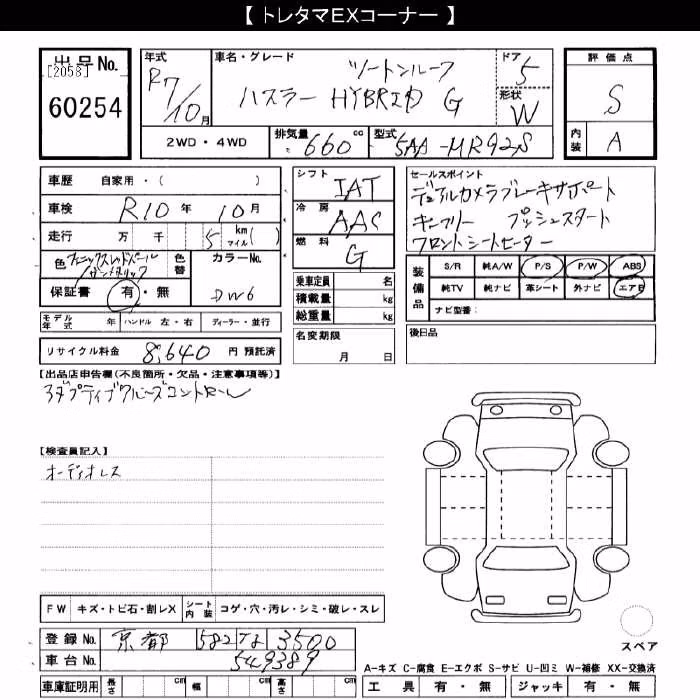 【 トレタマEXコーナー 】
出品No. [2058] 60254
年式 R7/10月
車名・グレード ツートンルーフ
ハスラー HYBRID G
ドア 5
形状 W
評価点 S
内装 A
2WD・4WD 排気量 660 cc 型式 5AA-MR92S
車歴 自家用・( )
車検 R10年 10月
走行 万 千 5 km マイル( )
色 フェニックスレッドパール ガンメタリック 色替 カラーNo.
保証書 有・無 DW6
モデル年式 年 ハンドル 左・右 ディーラー・並行
リサイクル料金 8,640 円 預託済
シフト IAT
冷房 AAC
燃料 G
乗車定員 名
積載量 kg
総重量 kg
名変期限
月 日
セールスポイント
デュアルカメラブレーキサポート
キーフリー プッシュスタート
フロントシートヒーター
装備品 S/R 純A/W P/S P/W ABS
純TV 純ナビ 革シート 外ナビ エアB
ナビ型番:
後日品
【出品店申告欄(不良箇所・欠品・注意事項等)】
アダプティブクルーズコントロール
【検査員記入】
オーディオレス
FW キズ・トビ石・割レX シート内装 コゲ・穴・汚レ・シミ・破レ・スレ
登録No. 京都 582 3500
車台No. 549389
車庫証明用 長さ cm 幅 cm 高さ cm
スペア
A-キズ C-腐食 E-エクボ S-サビ U-凹ミ W-補修 XX-交換済
工具 有・無 ジャッキ 有・無